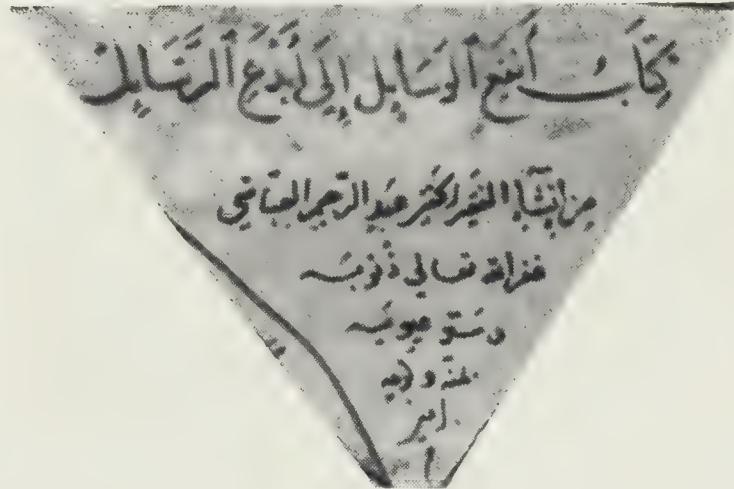 كتاب أنفع الوسايل إلى أبدع الرسايل
من انشآ الفقير الحقير عبد الرحيم العباسي
غفر الله تعالى ذنوبه
وستر عيوبه
بمنه
امين